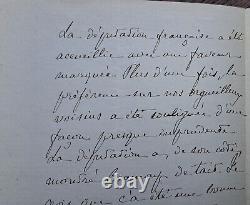 La députation française a été
accueillie avec une faveur
marquée. Plus d'une fois, la
préférence sur nos orgueilleux
voisins a été soulignée d'une
façon presque imprudente.
La députation a, de son côté,
montré beaucoup de tact. Je
crois que ç'a été une bonne